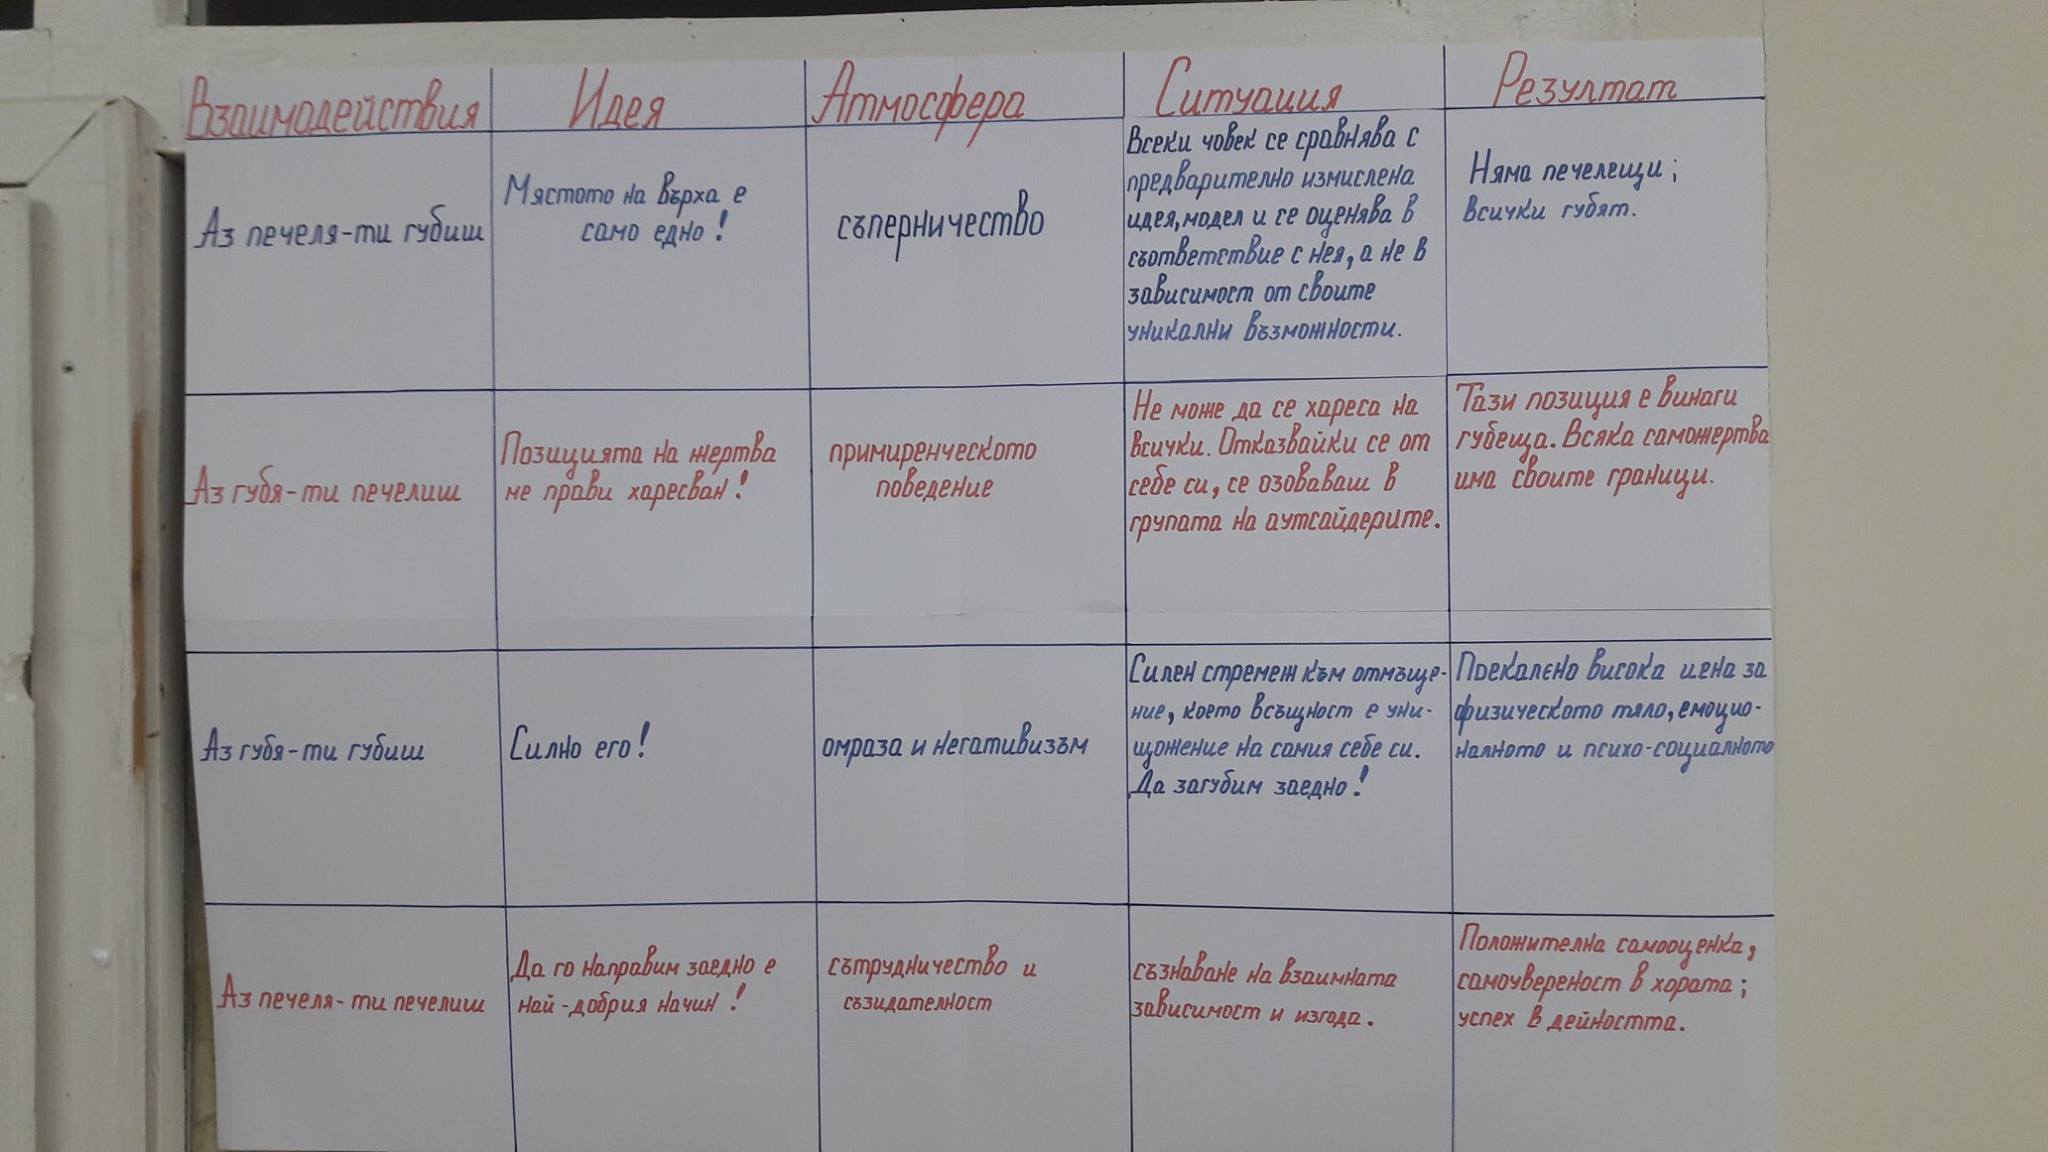 Взаимодействия
Идея
Атмосфера
Ситуация
Резултат
Аз печеля-ти губиш
Мястото на върха е
само едно!
съперничество
Всеки човек се сравнява с
предварително измислена
идея, модел и се оценява в
съответствие с нея, а не в
зависимост от своите
уникални възможности.
Няма печелещи;
всички губят.
Аз губя-ти печелиш
Позицията на жертва
ме прави харесван!
примиренческото
поведение
Не може да се хареса на
всички. Отказвайки се от
себе си, се озоваваш в
групата на аутсайдерите.
Тази позиция е винаги
губеща. Всяка саможертва
има своите граници.
Аз губя-ти губиш
Силно его!
омраза и негативизъм
Силен стремеж към отмъще-
ние, което всъщност е уни-
щожение на самия себе си.
Да загубим заедно!
Прекалено висока цена за
физическото тяло, емоцио-
налното и психо-социалното
Аз печеля-ти печелиш
Да го направим заедно е
най-добрия начин!
сътрудничество и
съзидателност
съзнаване на взаимната
зависимост и изгода.
Положителна самооценка,
самоувереност в хората;
успех в дейността.